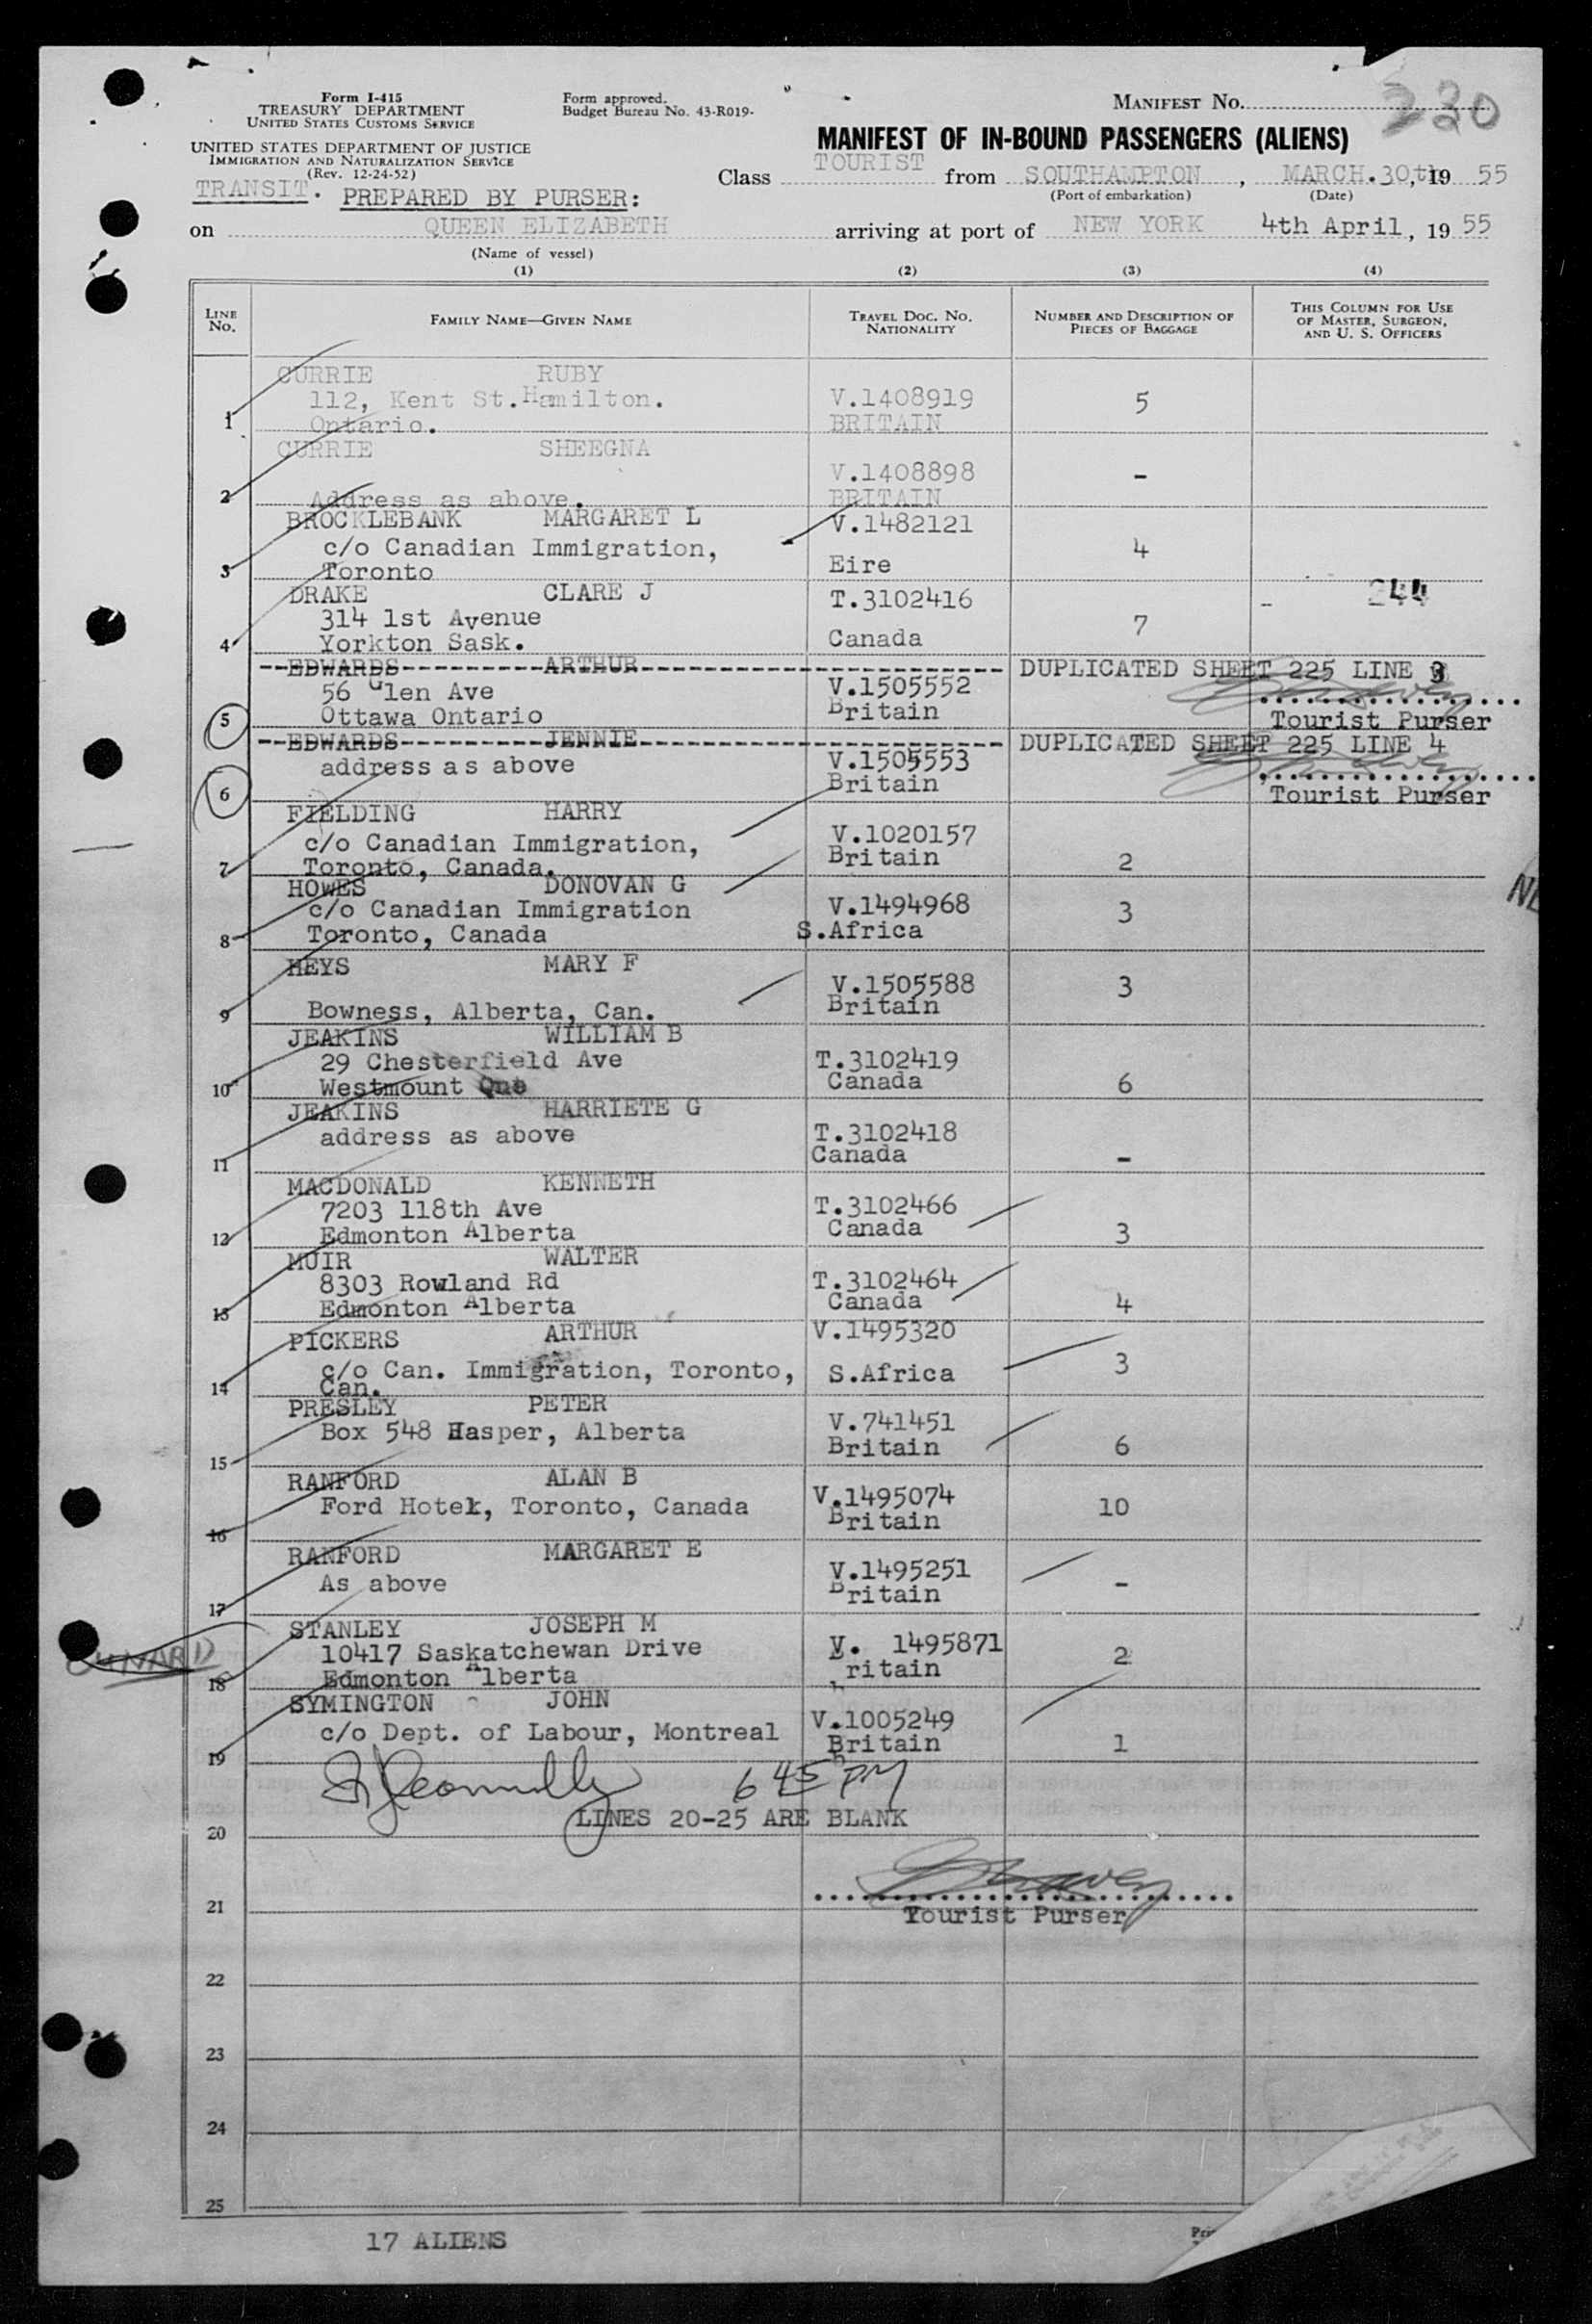 Form I-415
TREASURY DEPARTMENT
UNITED STATES CUSTOMS SERVICE
UNITED STATES DEPARTMENT OF JUSTICE
IMMIGRATION AND NATURALIZATION SERVICE
(Rev. 12-24-52)
Form approved.
Budget Bureau No. 43-R019-
MANIFEST No. 230
MANIFEST OF IN-BOUND PASSENGERS (ALIENS)
TRANSIT. PREPARED BY PURSER:
Class TOURIST from SOUTHAMPTON, MARCH.30,th 19 55
(Port of embarkation) (Date)
on QUEEN ELIZABETH arriving at port of NEW YORK 4th April, 19 55
(Name of vessel)
(1) (2) (3) (4)
LINE No. FAMILY NAME—GIVEN NAME TRAVEL DOC. NO. NATIONALITY NUMBER AND DESCRIPTION OF PIECES OF BAGGAGE THIS COLUMN FOR USE OF MASTER, SURGEON, AND U. S. OFFICERS
CURRIE RUBY
112, Kent St.Hamilton. V.1408919 5
1 Ontario. BRITAIN
CURRIE SHEEGNA
V.1408898 -
2 Address as above. BRITAIN
BROCKLEBANK MARGARET L V.1482121
c/o Canadian Immigration, 4
3 Toronto Eire
DRAKE CLARE J T.3102416 - 244
314 1st Avenue 7
4 Yorkton Sask. Canada
--EDWARDS----------ARTHUR-------------------------- DUPLICATED SHEET 225 LINE 3
56 Glen Ave V.1505552
5 Ottawa Ontario Britain Tourist Purser
--EDWARDS----------JENNIE-------------------------- DUPLICATED SHEET 225 LINE 4
address as above V.1505553
6 Britain Tourist Purser
FIELDING HARRY
c/o Canadian Immigration, V.1020157
7 Toronto, Canada. Britain 2
HOWES DONOVAN G
c/o Canadian Immigration V.1494968 3
8 Toronto, Canada S.Africa
HEYS MARY F
V.1505588 3
9 Bowness, Alberta, Can. Britain
JEAKINS WILLIAM B
29 Chesterfield Ave T.3102419
10 Westmount Que Canada 6
JEAKINS HARRIETE G
address as above T.3102418
11 Canada -
MACDONALD KENNETH
7203 118th Ave T.3102466
12 Edmonton Alberta Canada 3
MUIR WALTER
8303 Rowland Rd T.3102464
13 Edmonton Alberta Canada 4
PICKERS ARTHUR V.1495320
c/o Can. Immigration, Toronto, S.Africa 3
14 Can.
PRESLEY PETER
Box 548 Hasper, Alberta V.741451
15 Britain 6
RANFORD ALAN B
Ford Hotel, Toronto, Canada V.1495074 10
16 Britain
RANFORD MARGARET E
As above V.1495251 -
17 Britain
STANLEY JOSEPH M
CUNARD 10417 Saskatchewan Drive V. 1495871 2
18 Edmonton Alberta ritain
SYMINGTON JOHN
c/o Dept. of Labour, Montreal V.1005249
19 Britain 1
6 45 PM
LINES 20-25 ARE BLANK
20
21 Tourist Purser
22
23
24
25
17 ALIENS